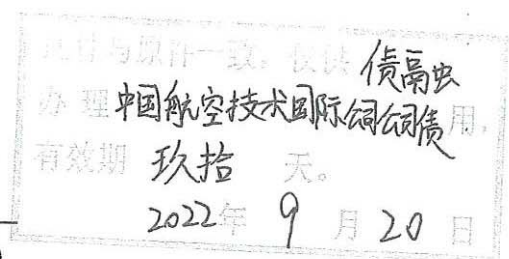 此件与原件一致，仅供 债融
办理中国航空技术国际公司债用，
有效期 玖拾 天。
2022年 9 月 20 日